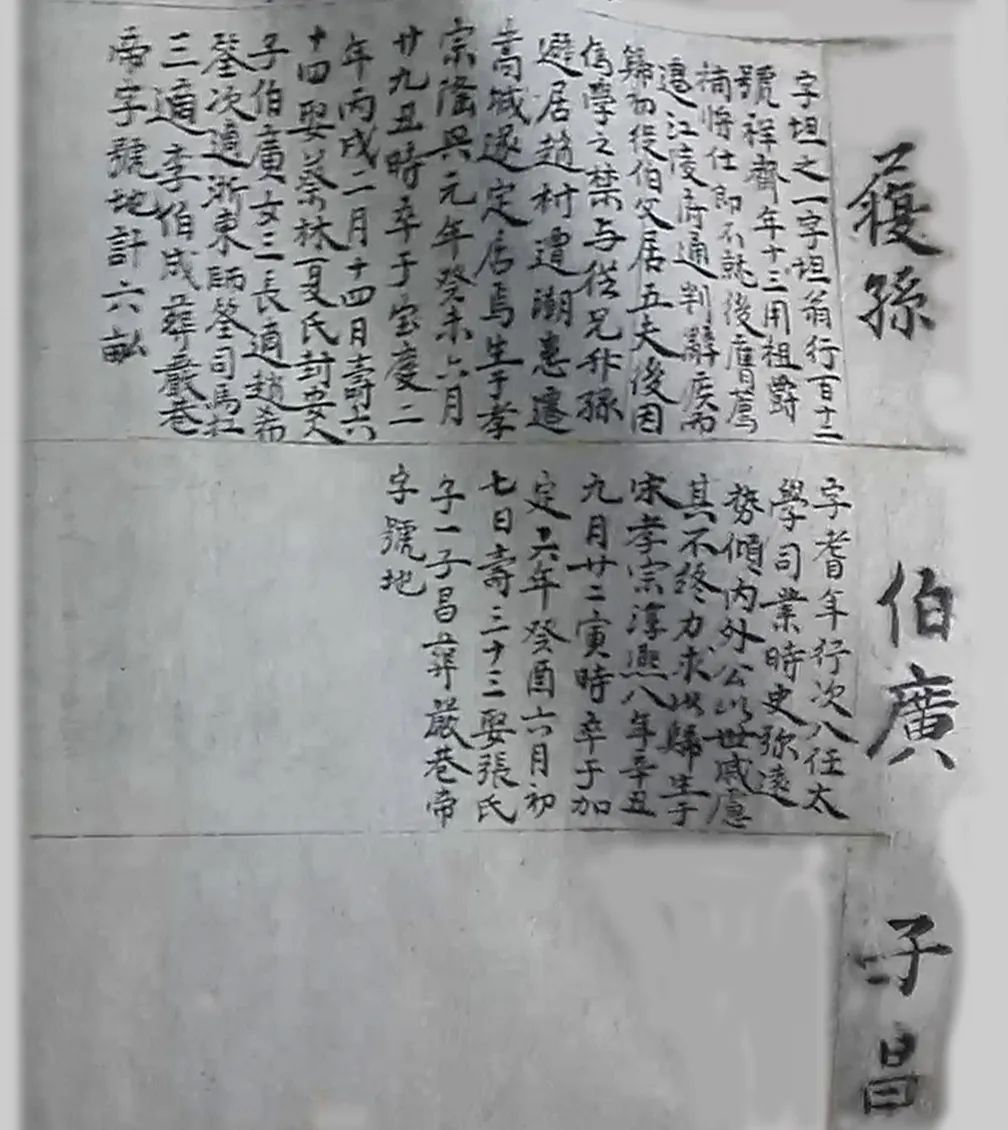 蕿孫
字坦之一字坦翁行百十二
號祥齋年十三用祖爵
補將仕郎不就後膺薦
遷江陵府通判辭疾而
歸初從伯父居五夫後因
偽學之禁与從兄升孫
避居趙村遭湖患遷
蒿城遂定居焉生于孝
宗隆興元年癸未六月
廿九丑時卒于宝慶二
年丙戌二月十四日壽六
十四娶蔡林夏氏封安人
子伯廣女三長適趙希
夂次適浙東師叅司馬
三適李伯成葬嚴巷
帝字號地計六畝
伯廣
字耆年行次八任太
學司業時史弥遠
势傾内外公以世戚慮
其不終力求以歸生于
宋孝宗淳熙八年辛丑
九月廿二寅時卒于加
定十六年癸酉六月初
七日壽三十三娶張氏
子一子昌葬嚴巷帝
字號地
子昌